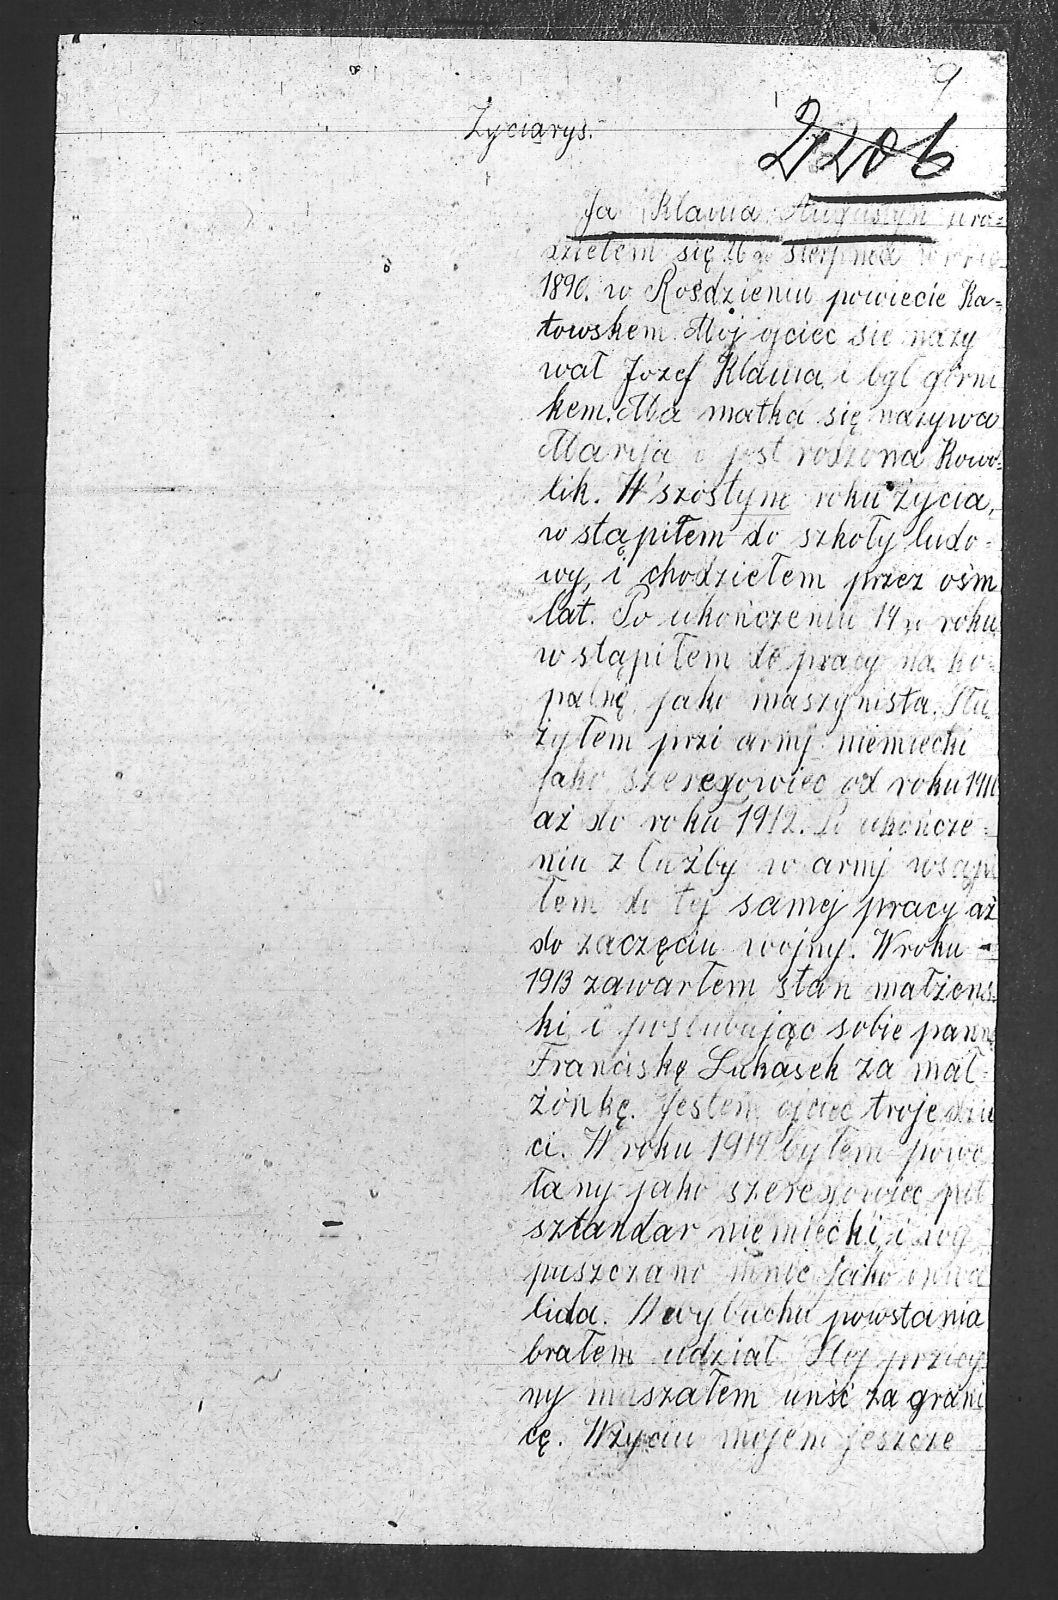 9
Życiarys.
2206
Ja Klama Augustyn uro=
dziełem się 16 go sierpnia w
1890. w Rośdzieniu powiecie Ka=
towskem. Mój ojciec sie nazy
wał Jozef Klama i był górni
kem. Ma matka się nazywa
Maryja i jest rodzona Kowo=
lik. W szóstym roku życia,
wstąpiłem do szkoły ludo=
wy, i chodziełem przez ośm
lat. Po ukończeniu 14 roku
wstąpiłem do pracy na ko=
palnę jako maszynista. Słu
żyłem przi armj niemiecki
jako szeregowiec od roku 1910
aż do roku 1912. Po ukończe=
niu złużby w armj wsąpi
łem do tej samej pracy aż
do zaczęciu wojny. W roku
1913 zawarłem stan małżens
ki i poślubując sobie pannę
Franciskę Lukasek za mał=
żónkę. Jestem ojciec troje dzie
ci. W roku 1914 byłem powo
łany jako szeregowiec pod
sztandar niemiecki i wy
puszczano mnie jako inwa
lida. W wybuchu powstania
brałem udział. S tej przicy
ny muszałem unść za grani
cę. W życiu mojem jeszcze